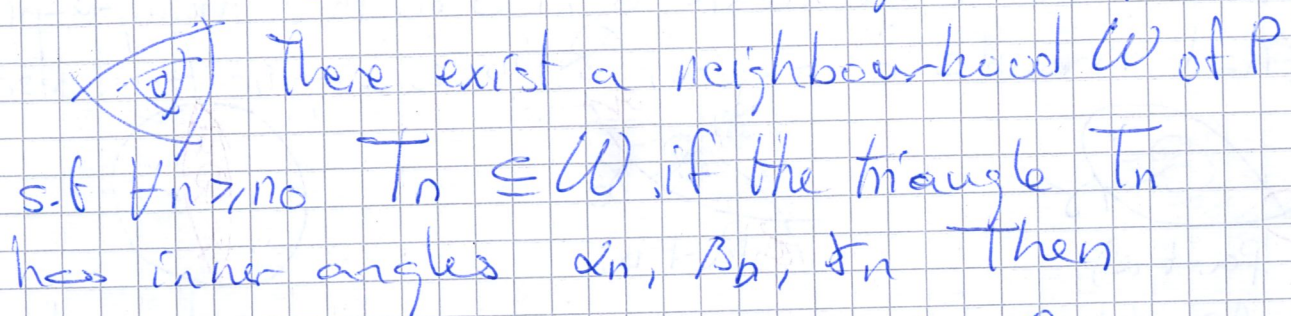 There exist a neighbourhood W of P
s.t ∀n≥n₀ Tₙ ⊆ W, if the triangle Tₙ
has inner angles αₙ, βₙ, γₙ Then